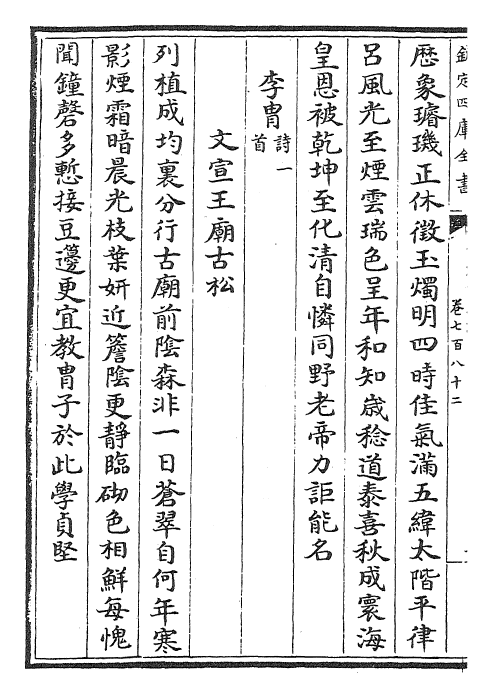 欽定四庫全書
卷七百八十二
歴象璿璣正休徵玉燭明四時佳氣滿五緯太階平律
呂風光至煙雲瑞色呈年和知歲稔道泰喜秋成寰海
皇恩被乾坤至化清自憐同野老帝力詎能名
李胄詩一首
文宣王廟古松
列植成均裏分行古廟前陰森非一日蒼翠自何年寒
影煙霜暗晨光枝葉妍近簷陰更靜臨砌色相鮮每愧
聞鐘磬多慙接豆籩更宜教胄子於此學貞堅